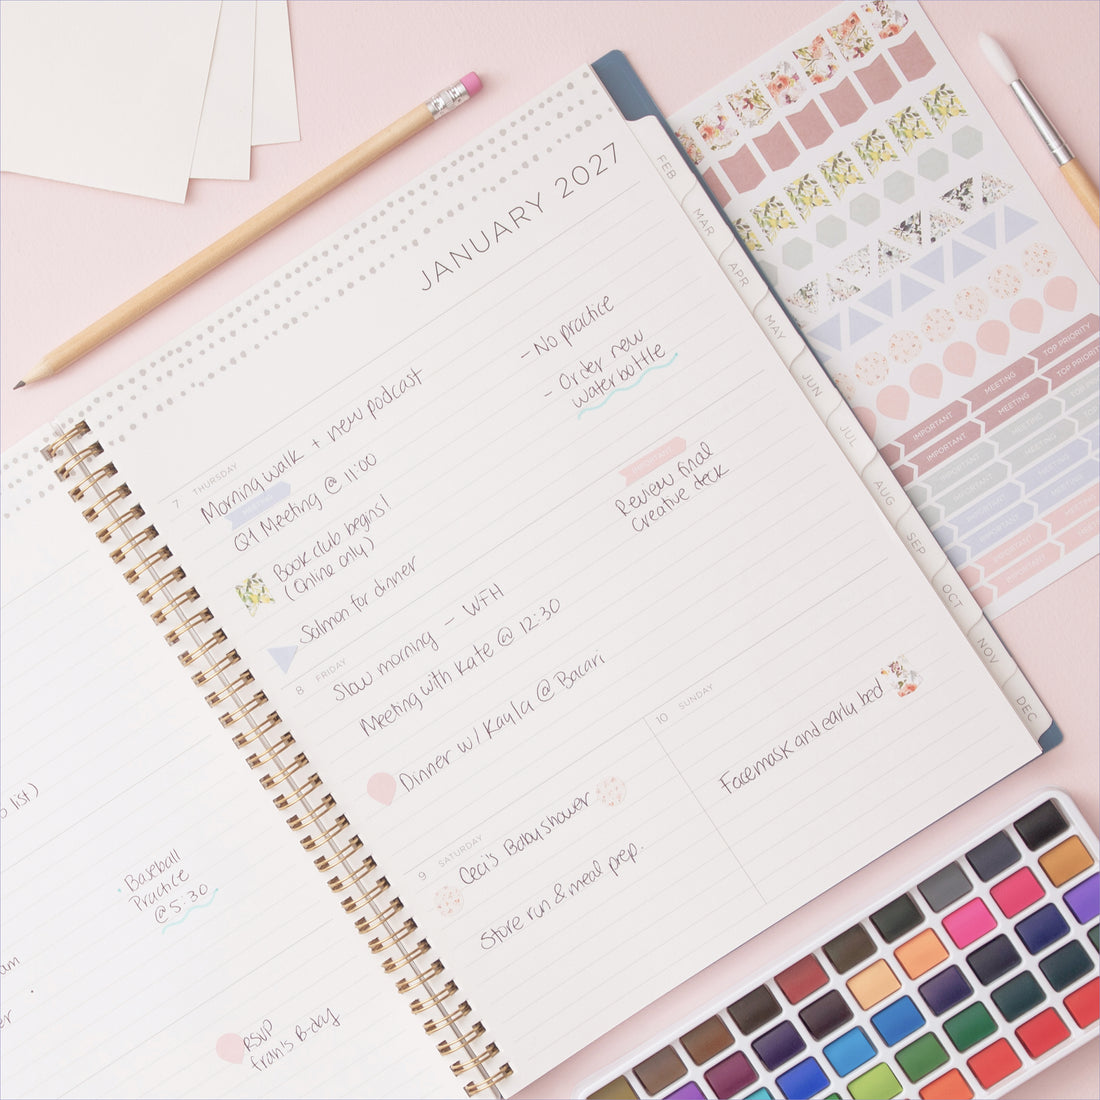 JANUARY 2027
7 THURSDAY
Morning walk + new podcast
MEETING
Q1 Meeting @ 11:00
Book club begins!
(Online only)
Salmon for dinner
- No practice
- Order new
water bottle
IMPORTANT
Review final
Creative deck
8 FRIDAY
Slow morning - WFH
Meeting with Kate @ 12:30
Dinner w/ Kayla @ Bacari
9 SATURDAY
Ceci's Babyshower
Store run & meal prep.
10 SUNDAY
Facemask and early bed
Baseball
Practice
@ 5:30
RSVP
fran's B-day
FEB
MAR
APR
MAY
JUN
JUL
AUG
SEP
OCT
NOV
DEC
IMPORTANT MEETING TOP PRIORITY
IMPORTANT MEETING TOP PRIORITY
IMPORTANT MEETING
IMPORTANT MEETING
IMPORTANT MEETING
IMPORTANT
IMPORTANT
IMPORTANT